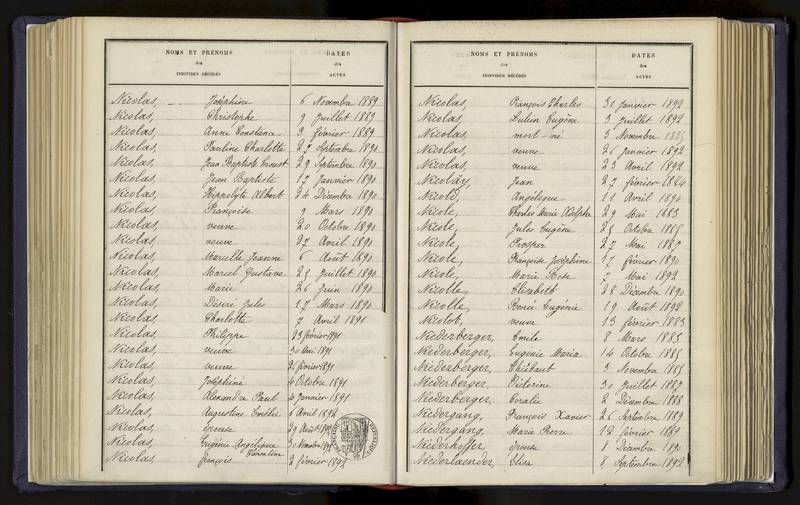 NOMS ET PRÉNOMS
des
INDIVIDUS DÉCÉDÉS
DATES
des
ACTES
Nicolas, Joséphine 6 Novembre 1889
Nicolas, Christophe 9 Juillet 1889
Nicolas, Anne Constance 3 février 1889
Nicolas, Pauline Charlotte 27 Septembre 1890
Nicolas, Jean Baptiste Ernest 29 Septembre 1890
Nicolas, Jean Baptiste 17 Janvier 1890
Nicolas, Hippolyte Albert 24 Décembre 1890
Nicolas, Françoise 9 Mars 1890
Nicolas, veuve 20 Octobre 1890
Nicolas, veuve 27 Avril 1891
Nicolas, Marcelle Jeanne 6 Août 1890
Nicolas, Marcel Gustave 25 Juillet 1890
Nicolas, Marie 26 Juin 1890
Nicolas, Désiré Jules 17 Mars 1890
Nicolas, Charlotte 7 Avril 1891
Nicolas, Philippe 23 février 1891
Nicolas, veuve 30 Mai 1891
Nicolas, veuve 25 février 1891
Nicolas, Joséphine 4 Octobre 1891
Nicolas, Alexandre Paul Janvier 1891
Nicolas, Augustine Emélie 6 Avril 1892
Nicolas, épouse 29 Août
Nicolas, Eugénie Angélique 30 Novembre
Nicolas, françois 2 février 1892
NOMS ET PRÉNOMS
des
INDIVIDUS DÉCÉDÉS
DATES
des
ACTES
Nicolas, François Charles 31 Janvier 1892
Nicolas, Lucien Eugène 3 Juillet 1892
Nicolas, mort-né 3 Novembre 1885
Nicolas, veuve 26 Janvier 1892
Nicolas, veuve 23 Avril 1892
Nicolay, Jean 27 février 1884
Nicold, Angélique 11 Avril 1890
Nicole, Charles Marie Adolphe 29 Mai 1883
Nicole, Jules Eugène 25 Octobre 1885
Nicole, Prosper 27 Mai 1887
Nicole, Françoise Joséphine 17 février 1890
Nicole, Marie Rose 7 Mai 1892
Nicolle, Elisabeth 28 Décembre 1890
Nicolle, Renée Eugénie 19 Août 1892
Nicolot, veuve 13 février 1883
Niederberger, Emile 8 Mars 1883
Niederberger, Eugénie Maria 14 Octobre 1885
Niederberger, Thiébaut 3 Novembre 1885
Niederberger, Victorine 30 Juillet 1887
Niederberger, Coralie 2 Décembre 1888
Niedergang, François Xavier 26 Septembre 1889
Niedergang, Marie Pierre 12 février 1889
Niederhoffer, épouse 8 Décembre 1890
Niederlaender, Elisa 8 Septembre 1892